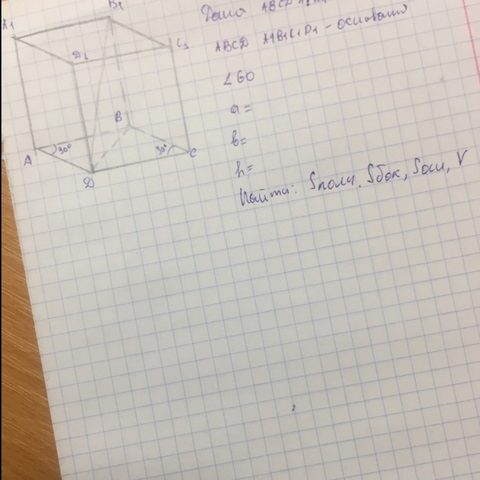 A1
B1
D1
C1
B
A
90°
30°
C
D
Дана ABCD
ABCD A1B1C1D1 - основания
∠60
a=
b=
h=
Найти: Sполн, Sбок, Sосн, V